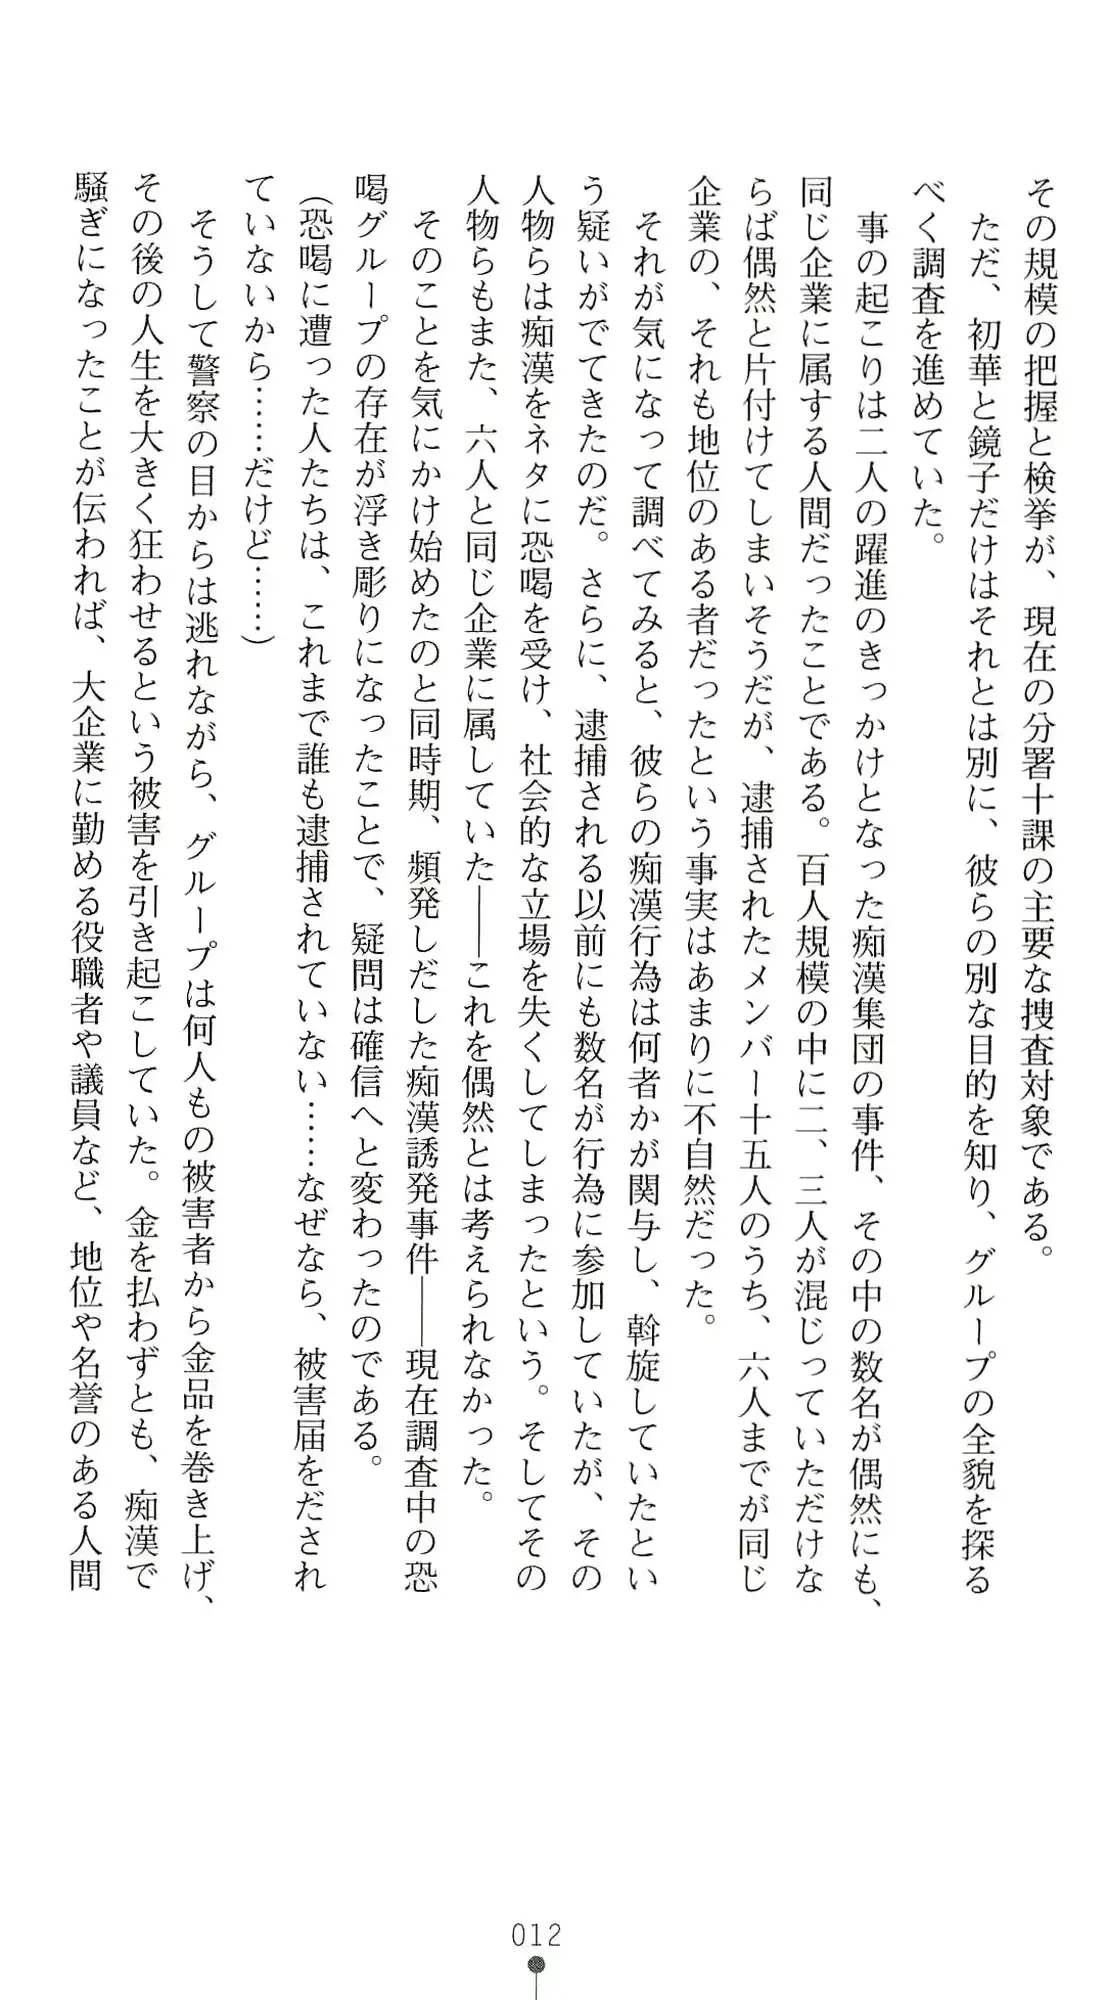 その規模の把握と検挙が、現在の分署十課の主要な捜査対象である。
ただ、初華と鏡子だけはそれとは別に、彼らの別な目的を知り、グループの全貌を探る
べく調査を進めていた。
事の起こりは二人の躍進のきっかけとなった痴漢集団の事件、その中の数名が偶然にも、
同じ企業に属する人間だったことである。百人規模の中に二、三人が混じっていただけな
らば偶然と片付けてしまいそうだが、逮捕されたメンバー十五人のうち、六人までが同じ
企業の、それも地位のある者だったという事実はあまりに不自然だった。
それが気になって調べてみると、彼らの痴漢行為は何者かが関与し、斡旋していたとい
う疑いがでてきたのだ。さらに、逮捕される以前にも数名が行為に参加していたが、その
人物らは痴漢をネタに恐喝を受け、社会的な立場を失くしてしまったという。そしてその
人物らもまた、六人と同じ企業に属していた――これを偶然とは考えられなかった。
そのことを気にかけ始めたのと同時期、頻発しだした痴漢誘発事件――現在調査中の恐
喝グループの存在が浮き彫りになったことで、疑問は確信へと変わったのである。
（恐喝に遭った人たちは、これまで誰も逮捕されていない……なぜなら、被害届をだされ
ていないから……だけど……）
そうして警察の目からは逃れながら、グループは何人もの被害者から金品を巻き上げ、
その後の人生を大きく狂わせるという被害を引き起こしていた。金を払わずとも、痴漢で
騒ぎになったことが伝われば、大企業に勤める役職者や議員など、地位や名誉のある人間
012